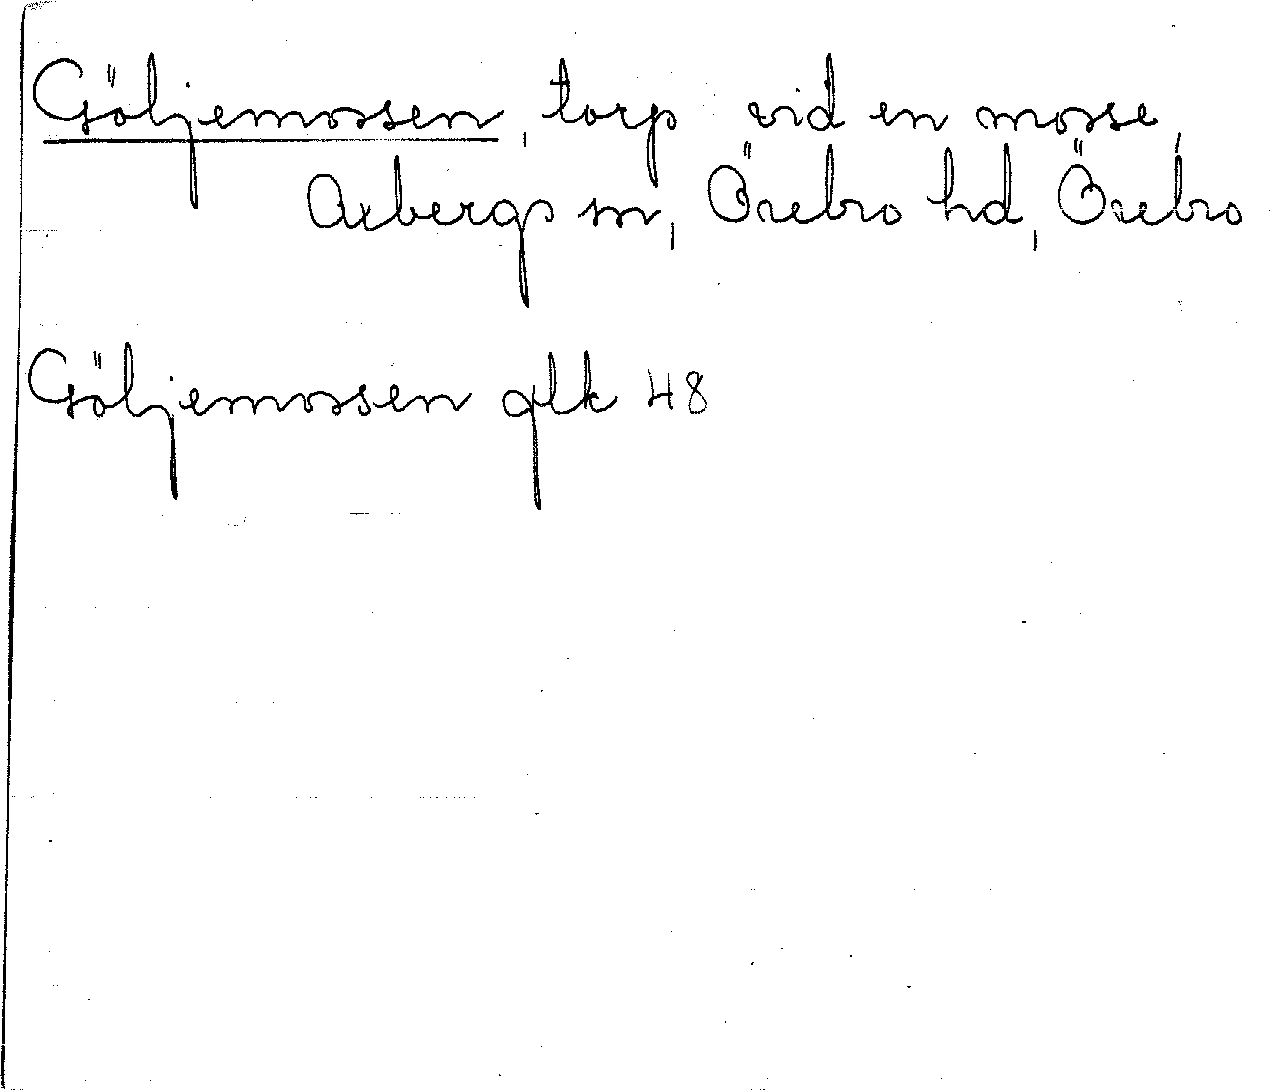 Göljemossen, torp vid en mosse,
Axbergs sn, Örebro hd, Örebro
Göljemossen glk 48